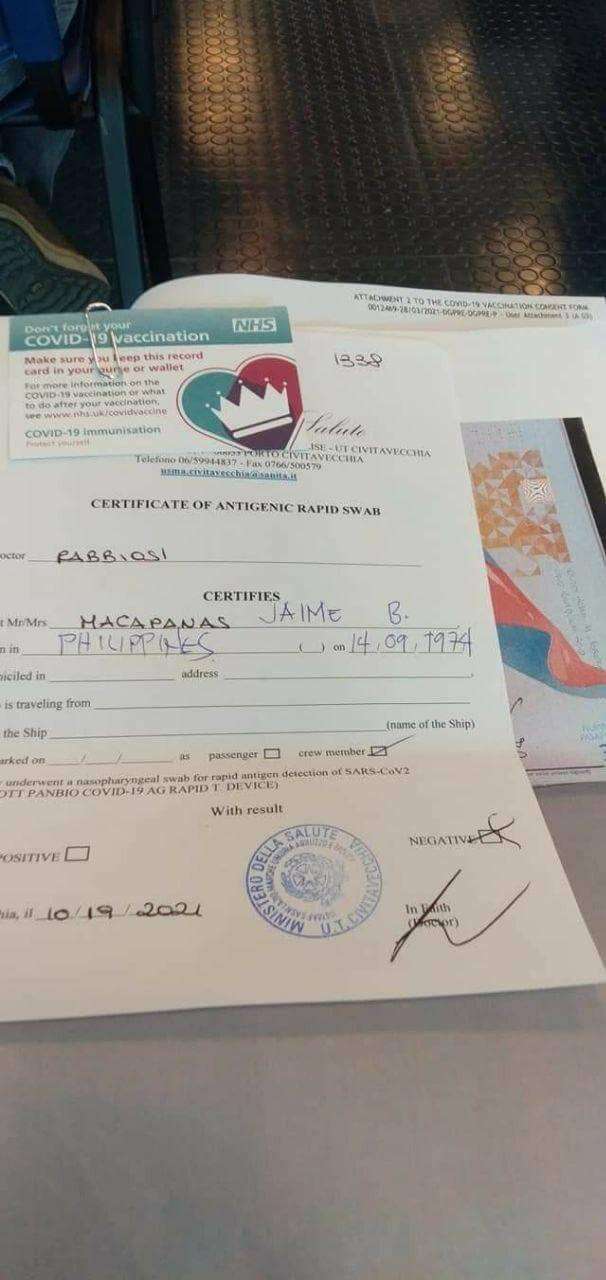 ATTACHMENT 2 TO THE COVID-19 VACCINATION CONSENT FORM
0012469-28/03/2021-DGPRE-DGPRE-P - User Attachment 3 (A 03)
Don't forget your
COVID-19 vaccination
NHS
Make sure you keep this record
card in your purse or wallet
For more information on the
COVID-19 vaccination or what
to do after your vaccination,
see www.nhs.uk/covidvaccine
COVID-19 immunisation
Protect yourself
1338
Salute
UT CIVITAVECCHIA
PORTO CIVITAVECCHIA
Telefono 06/59944837 - Fax 0766/500579
usma.civitavecchia@sanita.it
CERTIFICATE OF ANTIGENIC RAPID SWAB
octor RABBIOSI
CERTIFIES
t Mr/Mrs MACAPANAS JAIME B.
n in PHILIPPINES ( ) on 14.09.1974
iciled in address
is traveling from
the Ship (name of the Ship)
arked on / / as passenger crew member
underwent a nasopharyngeal swab for rapid antigen detection of SARS-CoV2
OTT PANBIO COVID-19 AG RAPID T. DEVICE)
With result
POSITIVE NEGATIVE
MINISTERO DELLA SALUTE
U.T. CIVITAVECCHIA
hia, il 10/19/2021
In Faith
(Doctor)